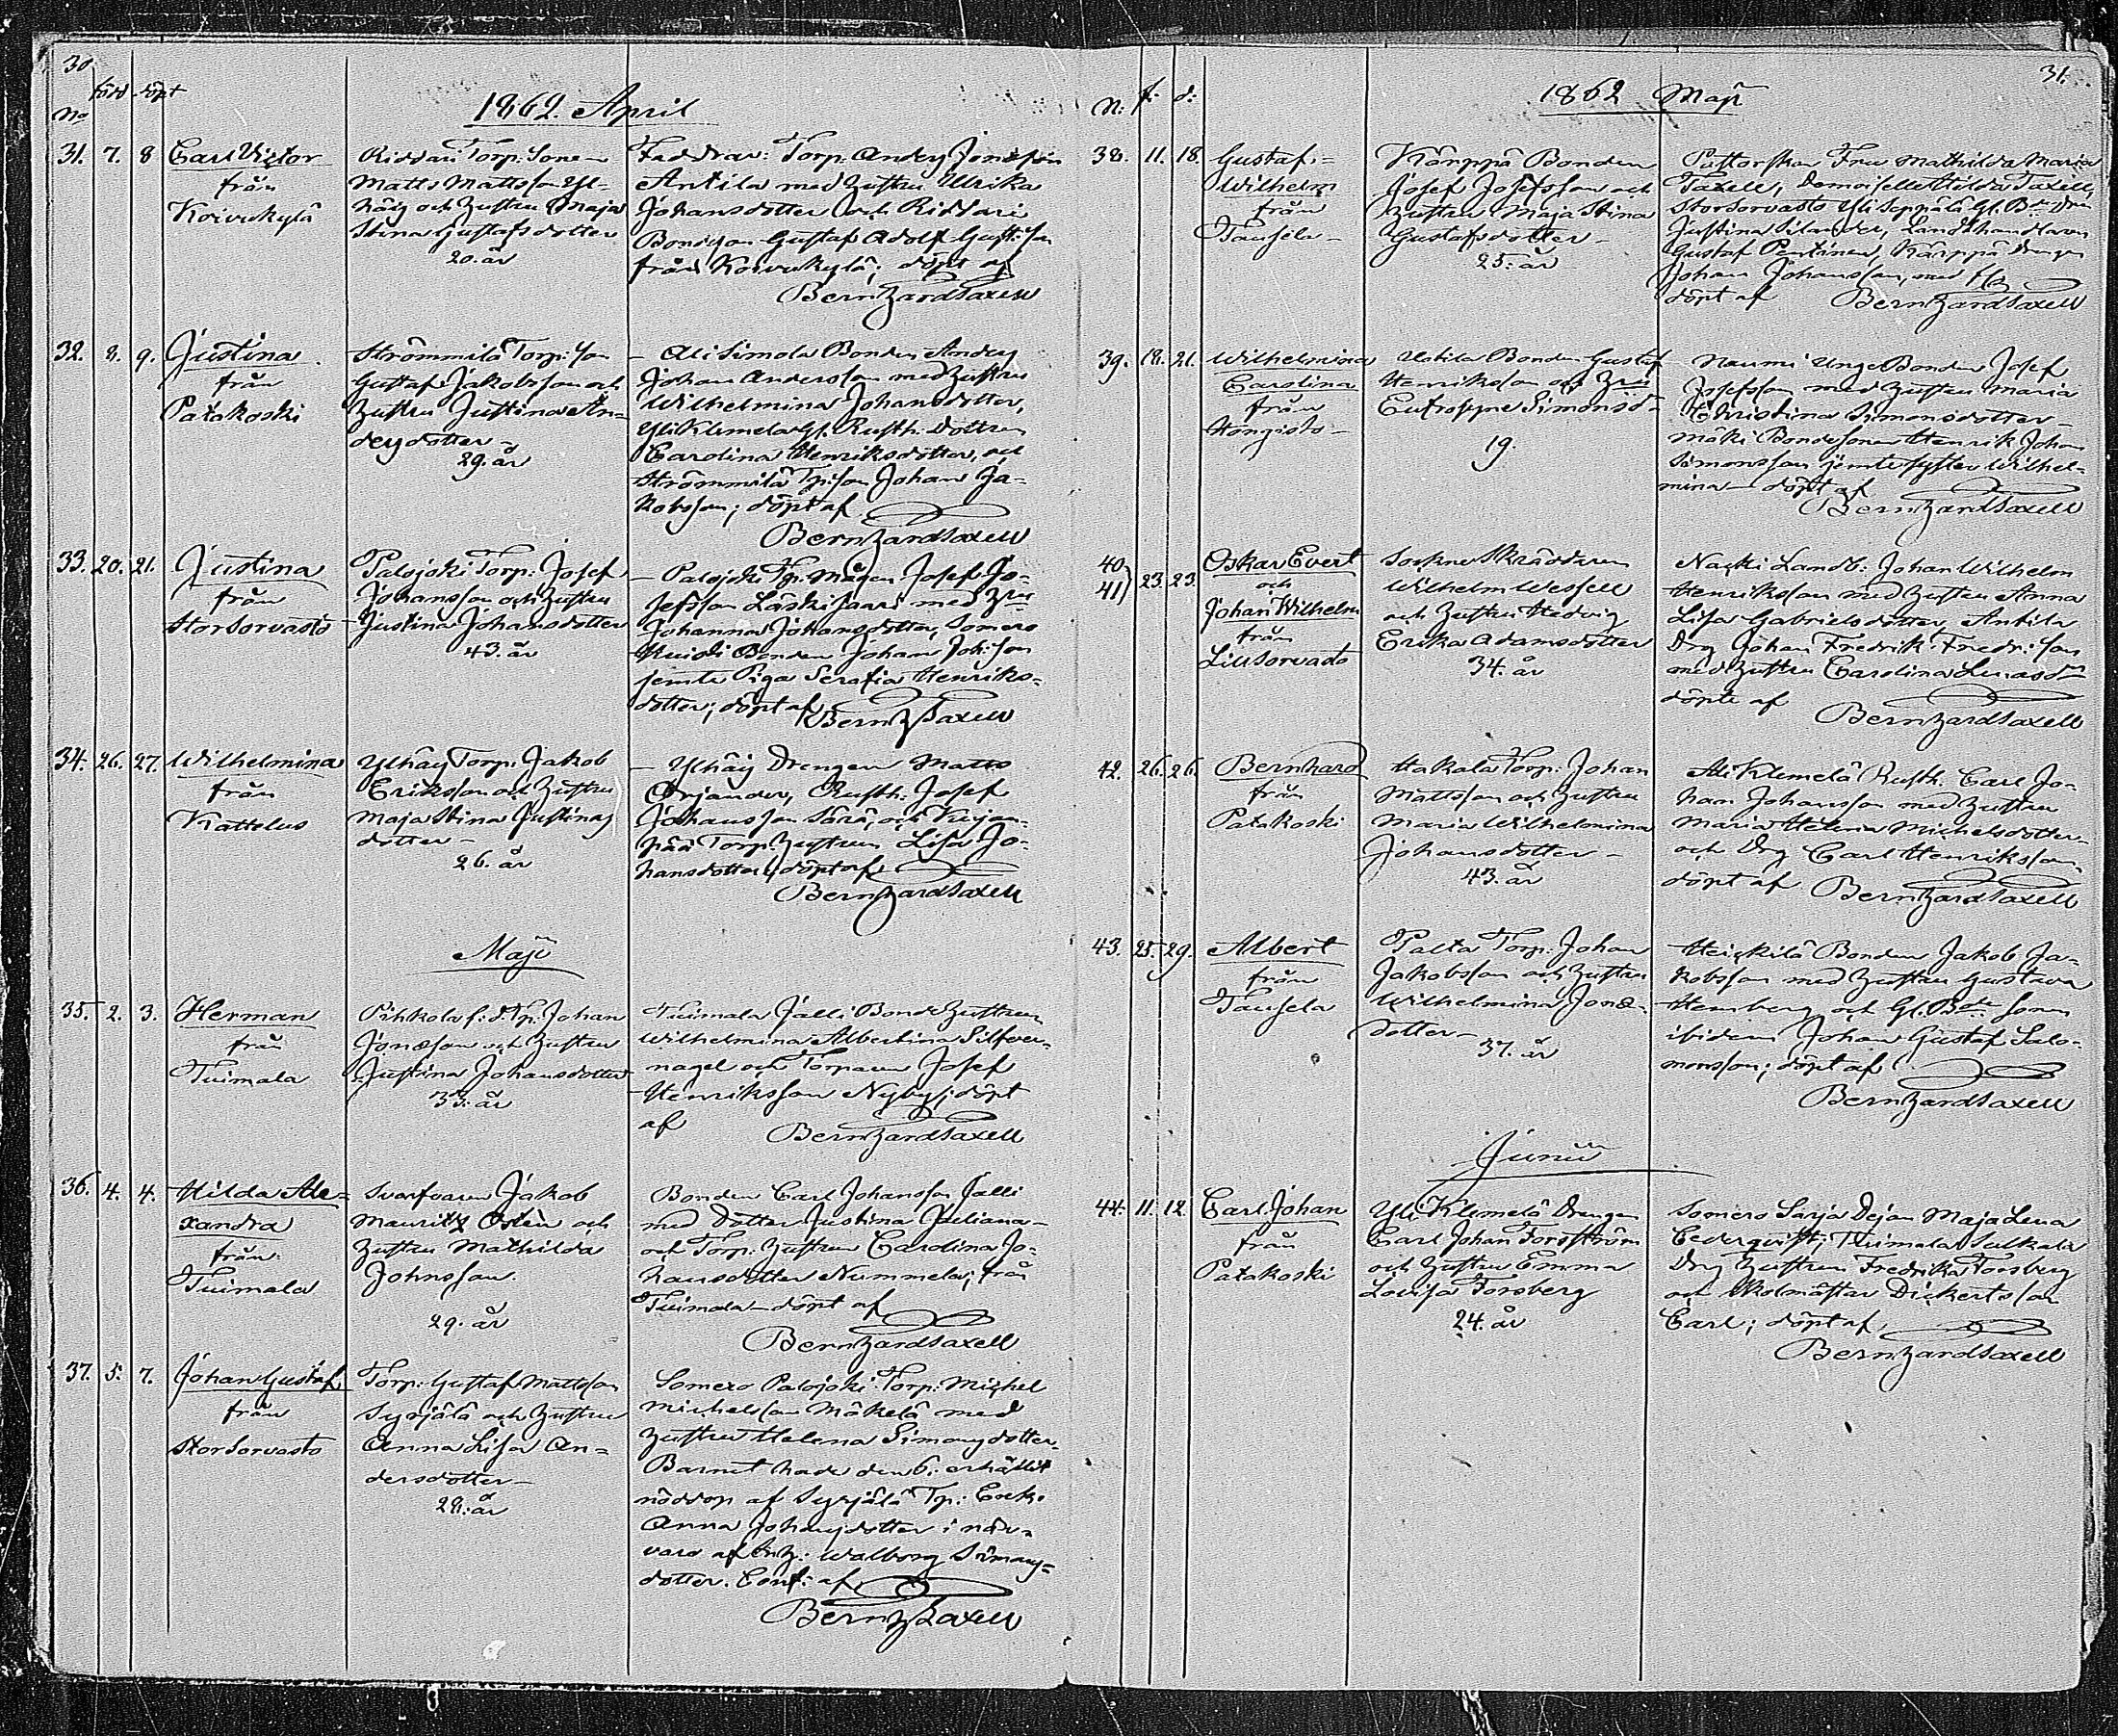 30
född döpt
No
1862. April
31. 7. 8
Carl Victor
från
Koivukylä
Riddari Torp: Sonen
Matts Mattsson Yl-
häig och Hustru Maja
Stina Gustafsdotter
20. år
Faddrar: Torp: Anders Jonæson
Antila med Hustru Ulrika
Johansdotter och Riddari
Bondson Gustaf Adolf
från Koivukylä; döpt af
Bernhard Taxell
32. 8. 9.
Justina
från
Patakoski
Strömmilä Torp: Son
Gustaf Jakobsson och
Hustru Justina An-
dersdotter -
29. år
- Ali Simola Bonden Anders
Johan Andersson med Hustru
Wilhelmina Johansdotter,
Yli Klemelä Gl. Rusth. Dottren
Carolina Henriksdotter, och
Strömmilä Tp: son Johan Ja-
kobsson; döpt af
Bernhard Taxell
33. 20. 21.
Justina
från
Storsorvasto
Palojoki Torp: Josef
Johansson och Hustru
Justina Johansdotter
43. år
- Palojoki Tp: Mågen Josef Jo-
sefsson Läskisaari med Hru
Johanna Johansdotter, Somero
Bonden Johan Joh:son
jemte Piga Serafia Henriks-
dotter; döpt af
Bernh Taxell
34. 26. 27.
Wilhelmina
från
Kattelus
Ylhäig Torp: Jakob
Eriksson och Hustru
Maja Stina Justinas
dotter -
26. år
- Ylhäig Drengen Matts
Orjander, Rusth: Josef
Johansson Särä, och
Torp: Hustrun Lisa Jo-
hansdotter; döpt af
Bernhard Taxell
Maji
35. 2. 3.
Herman
från
Tuimala
Pihkola f:d. Tp: Johan
Jonæson och Hustru
Justina Johansdotter
33. år
Tuimala Jalli Bonde Hustrun
Wilhelmina Albertina Silfver-
nagel och Torparen Josef
Henriksson Nyby; döpt
af
Bernhard Taxell
36. 4. 4.
Hilda Ale-
xandra
från
Tuimala
Svarfvaren Jakob
Mauritz Östen och
Hustru Mathilda
Johnsson.
29. år
Bonden Carl Johansson Jalli
med Dotter Justina Juliana -
och Torp: Hustrun Carolina Jo-
hansdotter Nummela; från
Tuimala - döpt af
Bernhard Taxell
37. 5. 7.
Johan Gustaf
från
Storsorvasto
Torp: Gustaf Mattsson
Syrjälä och Hustru
Anna Lisa An-
dersdotter -
28. år
Somero Palojoki Torp: Michel
Michelsson Mäkelä med
Hustru Helena Simonsdotter.
Barnet hade den 6: erhållit
nöddop af Syrjälä Tp: Enk.
Anna Johansdotter i när-
varo af Walborg Simons-
dotter. Conf: af
Bernh Taxell
31.
N: f: d:
1862 Maji
38. 11. 18.
Gustaf =
Wilhelm
från
Tausela -
Kärppä Bonden
Josef Josefsson och
Hustru Maja Stina
Gustafsdotter -
25. år
Pastorskan Fru Mathilda Maria
Taxell, Demoiselle Hilda Taxell,
Storsorvasto Yli Seppälä Gl. Bde Dra
Justina Silander, Landthandlaren
Gustaf Pentinen, Kärppä Drengen
Johan Johansson, med fl.
döpt af
Bernhard Taxell
39. 18. 21.
Wilhelmina
Carolina
från
Hongisto -
Uotila Bonden Gustaf
Henriksson och Hru
Eufrosyne Simonsd-
19.
Naumi Unge Bonden Josef
Josefsson med Hustru Maria
Christina Simonsdotter -
Mäki Bondesonen Henrik Johan
Simonsson jemte syster Wilhel-
mina - döpt af
Bernhard Taxell
40
41) 23. 23.
Oskar Evert
och
Johan Wilhelm
från
Lillsorvasto
Sockne Skräddaren
Wilhelm Wessell
och Hustru Hedvig
Erika Adamsdotter
34. år
Landb: Johan Wilhelm
Henriksson med Hustru Anna
Lisa Gabrielsdotter, Antila
Drg Johan Fredrik Fredr:son
med Hustru Carolina
döpte af
Bernhard Taxell
42. 26. 26.
Bernhard
från
Patakoski
Hakala Torp: Johan
Mattsson och Hustru
Maria Wilhelmina
Johansdotter -
43. år
Ali Klemelä Rusth. Carl Jo-
han Johansson med Hustru
Maria Helena Michelsdotter -
och Drg Carl Henriksson
döpt af
Bernhard Taxell
43. 25. 29.
Albert
från
Tausela
Palta Torp: Johan
Jakobsson och Hustru
Wilhelmina Jonæ-
dotter -
37. år
Heikkilä Bonden Jakob Ja-
kobsson med Hustru Gustava
Hemberg och Gl. Bde sonen
ibidem Johan Gustaf Salo-
monsson; döpt af
Bernhard Taxell
Junii
44. 11. 12.
Carl Johan
från
Patakoski
Yli Klemelä Drengen
Carl Johan Forsström
och Hustru Emma
Lovisa Forsberg
24. år
Somero Sarja Dejan Maja Lena
Cederqvist; Tuimala Sulkala
Drg Hustrun Fredrika Forsberg
och Skolmästar Dickerts son
Carl; döpt af
Bernhard Taxell